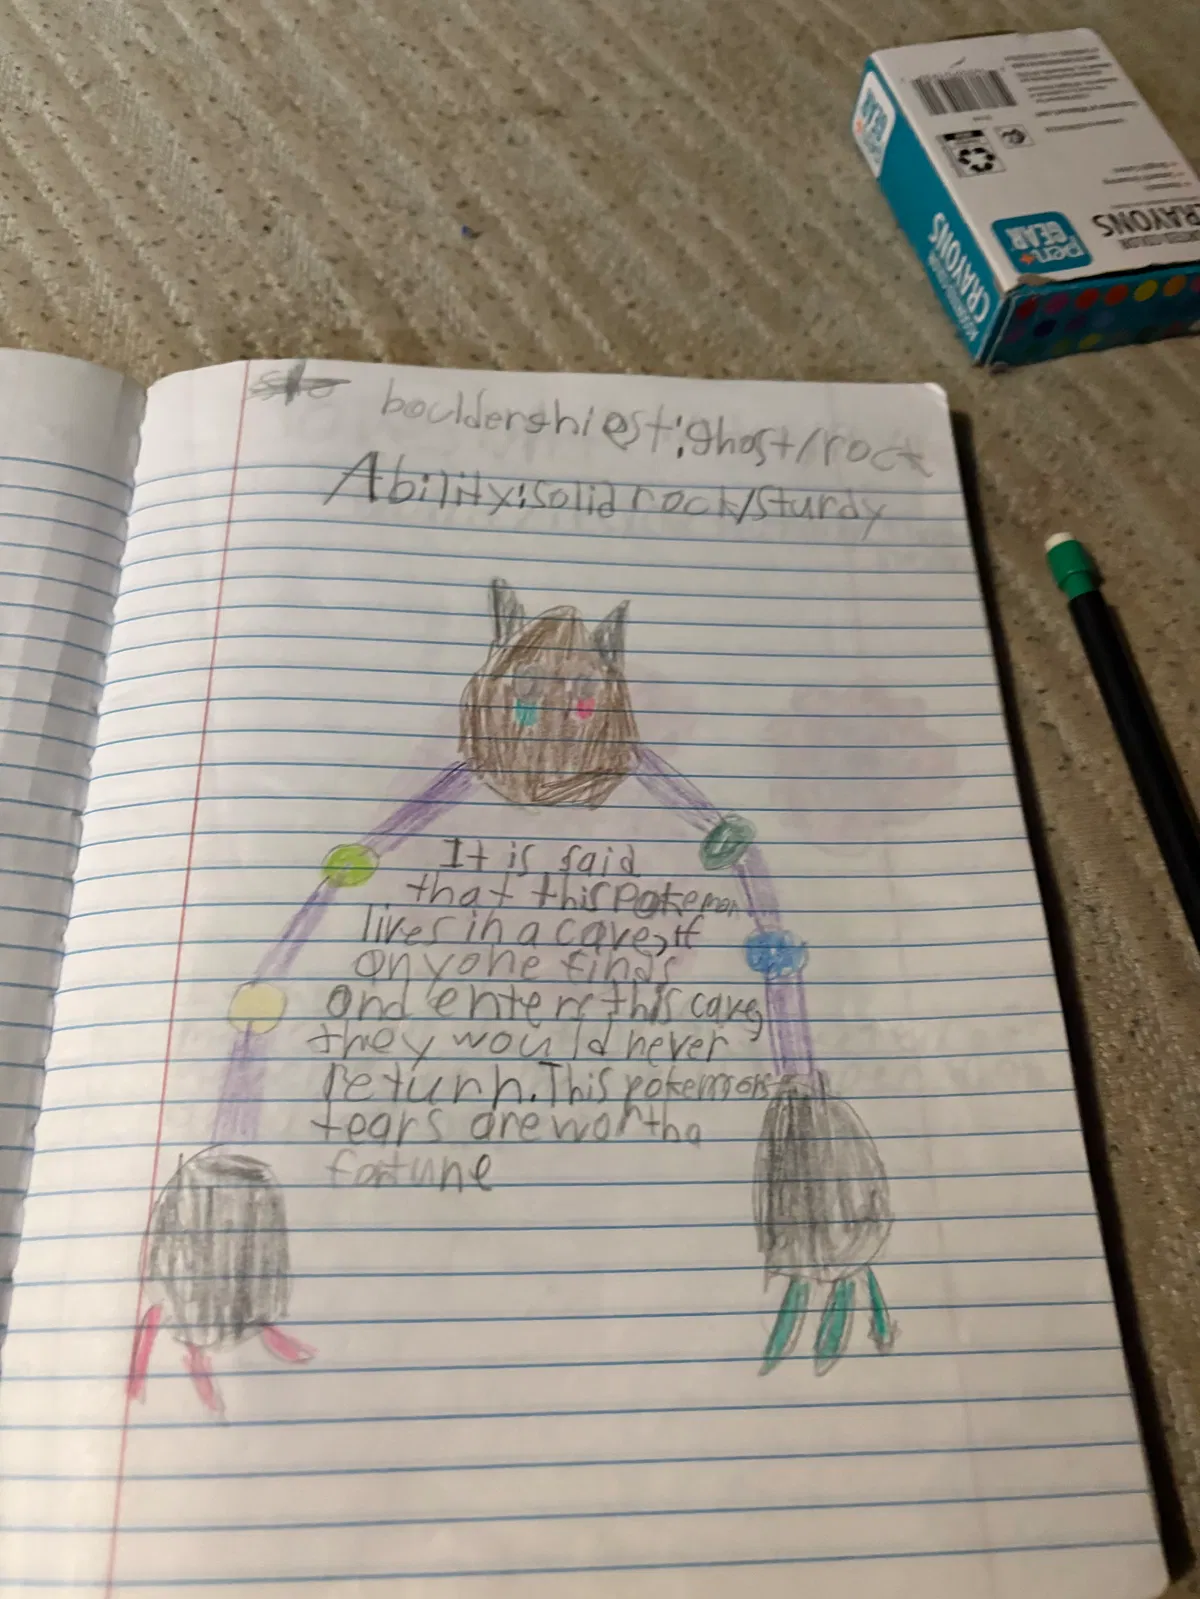 bouldergh iest:ghost/rock
Ability:solid rock/sturdy
It is said
that this pokemon
lives in a cave, if
anyone finds
and enters this cave,
they would never
return. This pokemons
tears are wortha
fortune
pen+
GEAR
CRAYONS
CRAYONS
pen+
GEAR